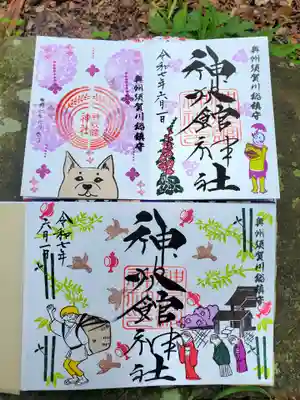 奥州須賀川総鎮守
神炊館神社
令和七年六月一日
神炊館
神社
奥州須賀川総鎮守
神炊館神社
令和七年
六月一日